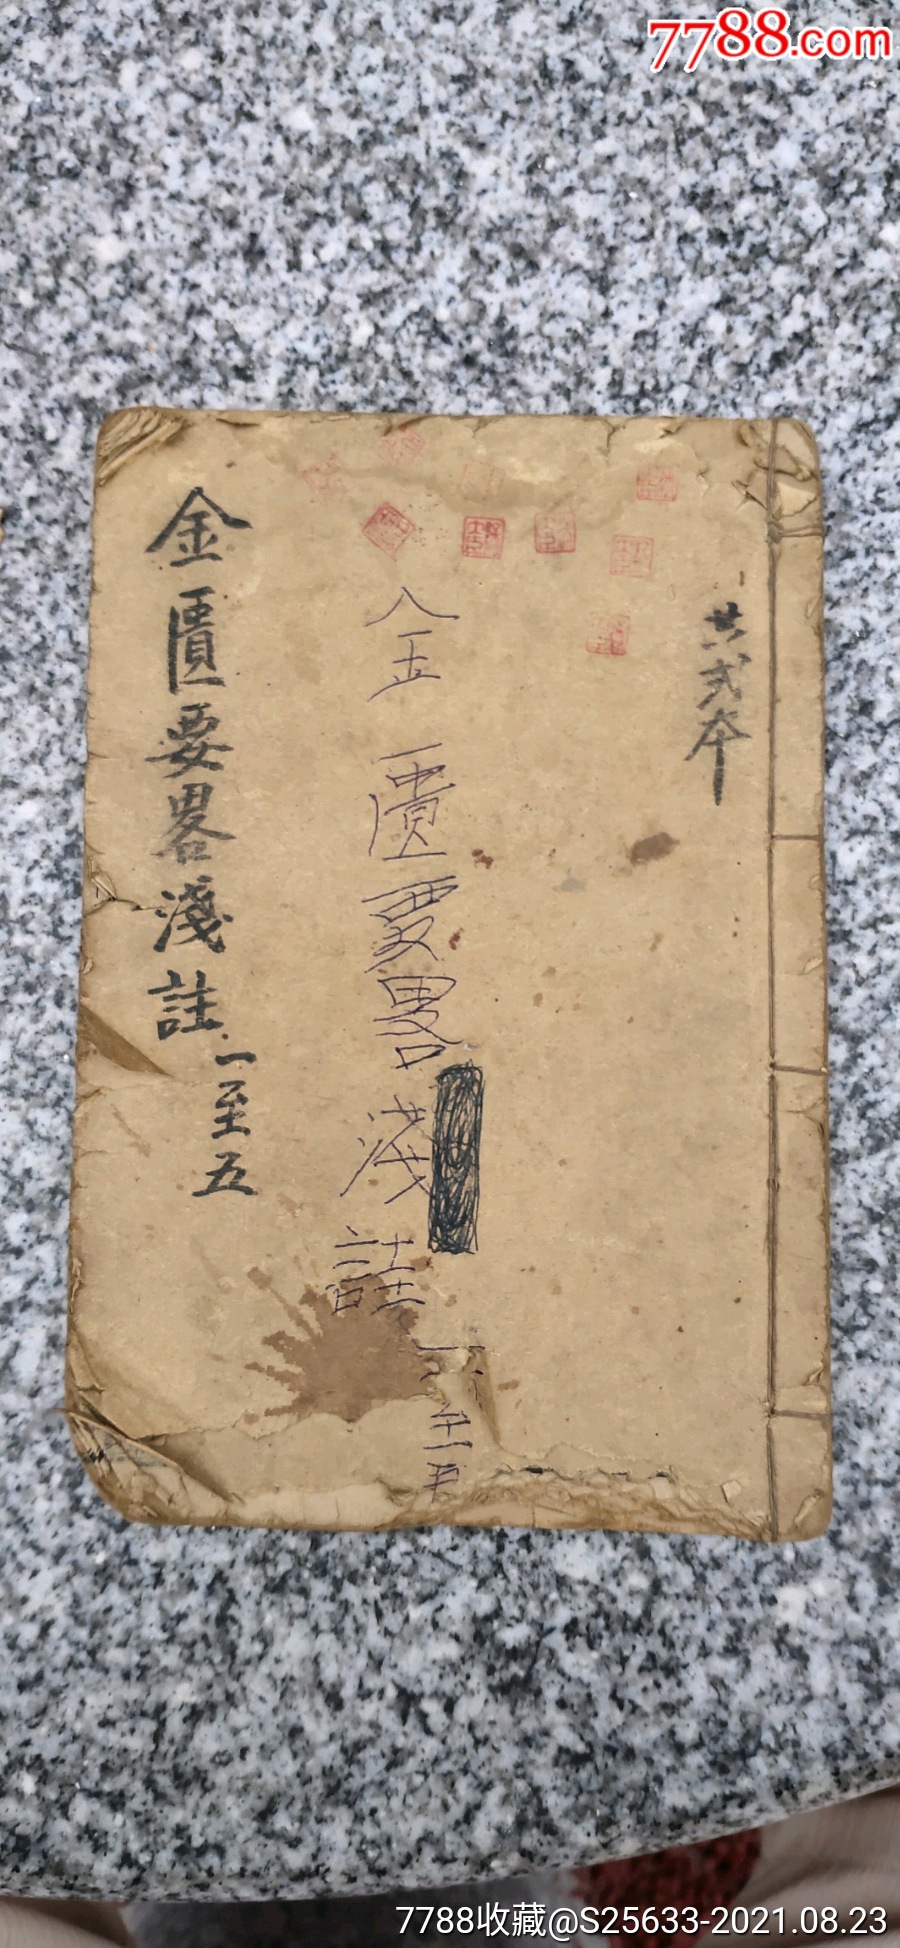 7788.com
共弍本
金匱要畧淺註
一至五
金匱要畧淺註
一至五
7788收藏@S25633-2021.08.23